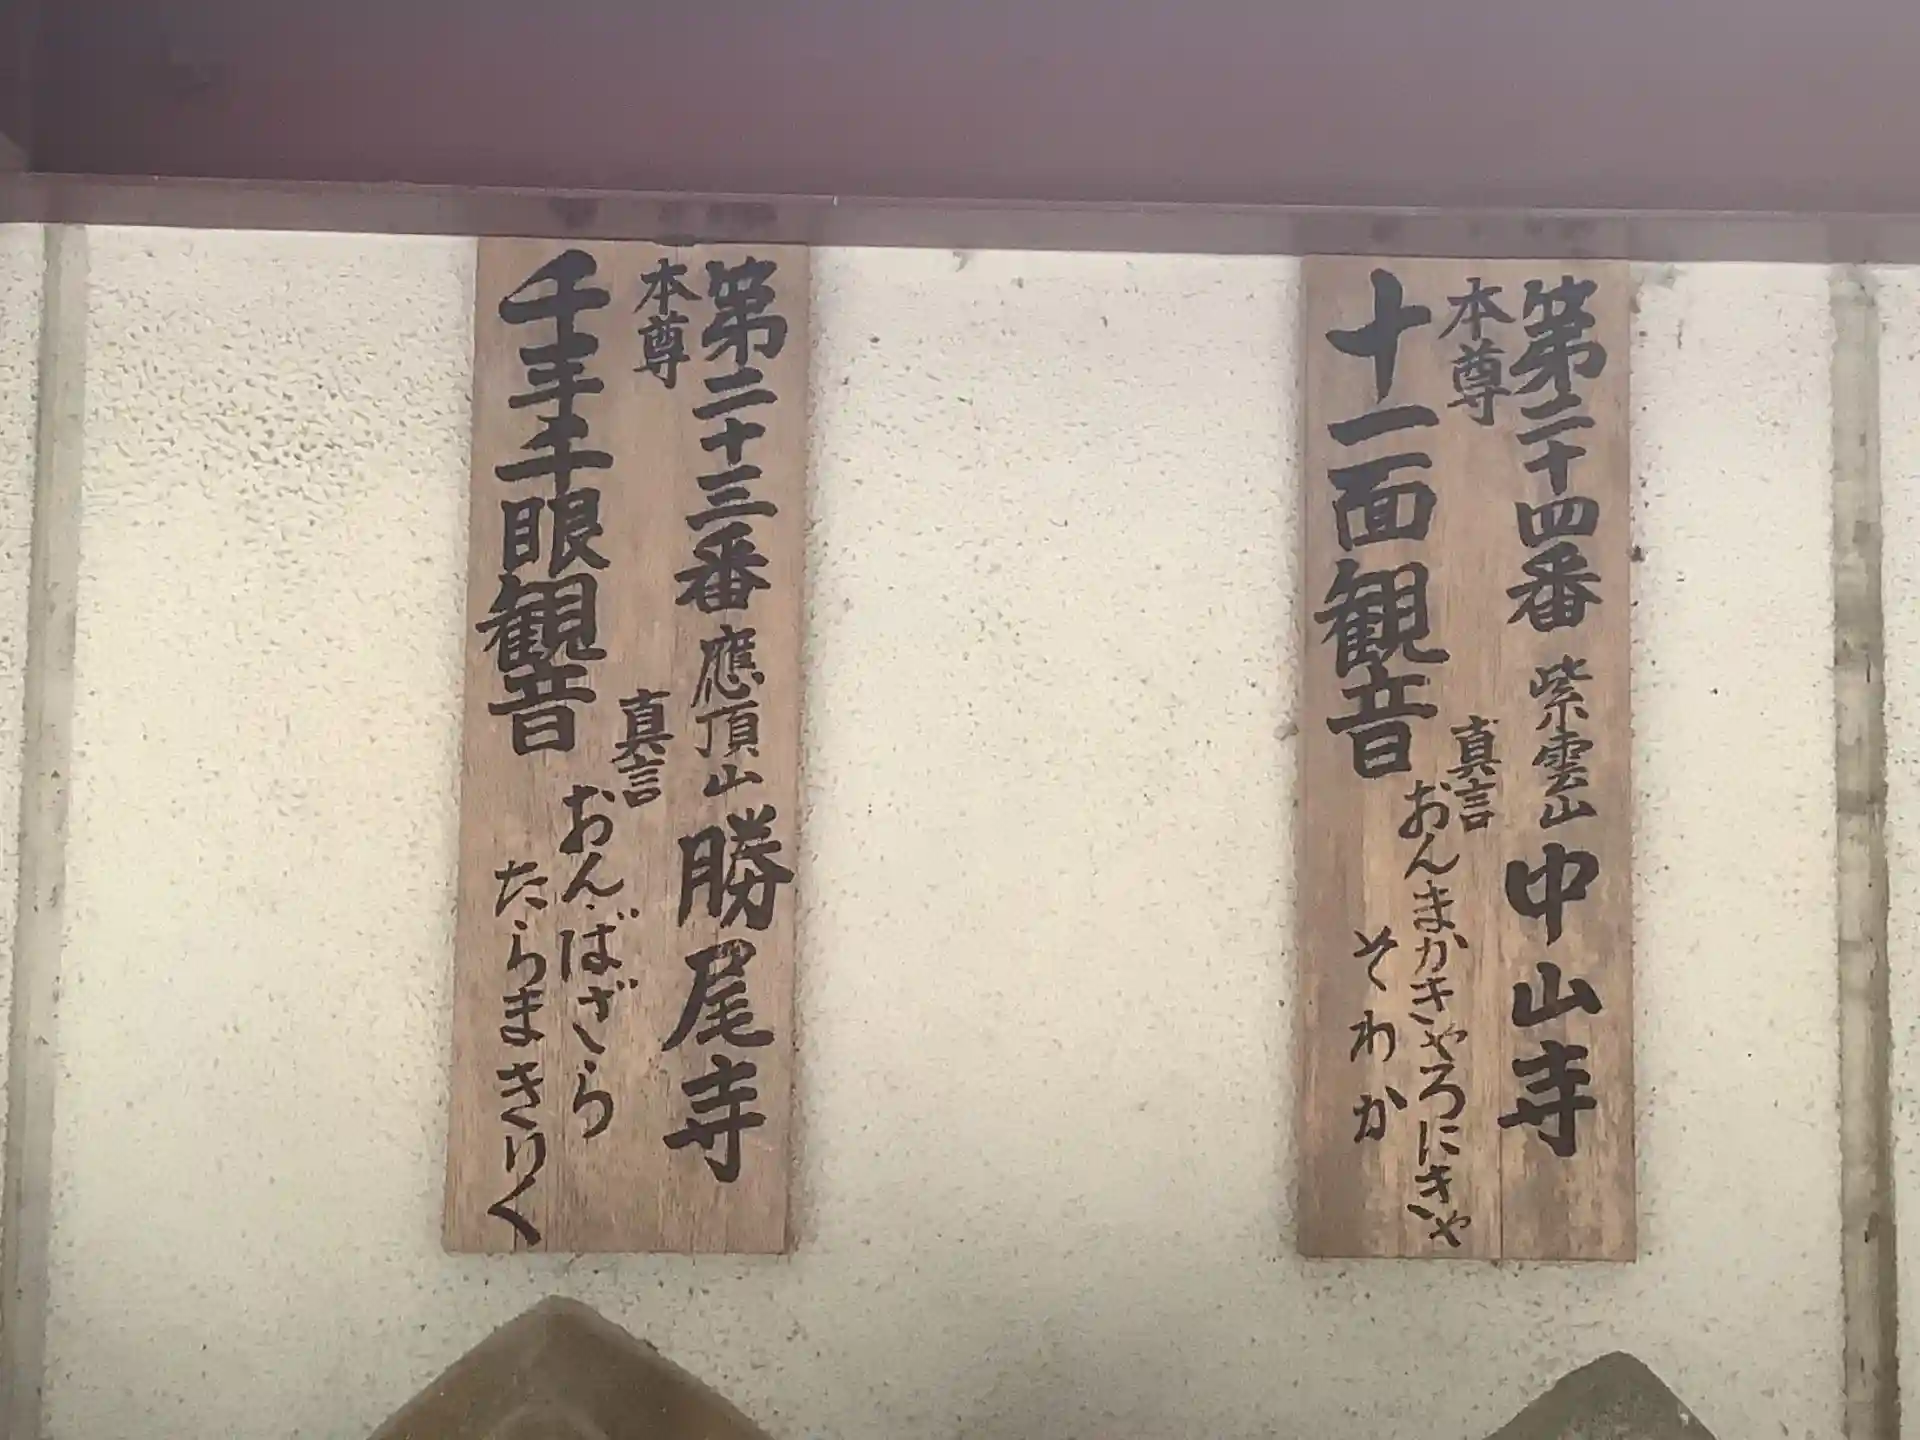 第二十四番 紫雲山 中山寺
本尊
十一面観音
真言
おんまかきゃろにきゃ
そわか
第二十三番 應頂山 勝尾寺
本尊
千手千眼観音
真言
おん.ばざら
たらまきりく